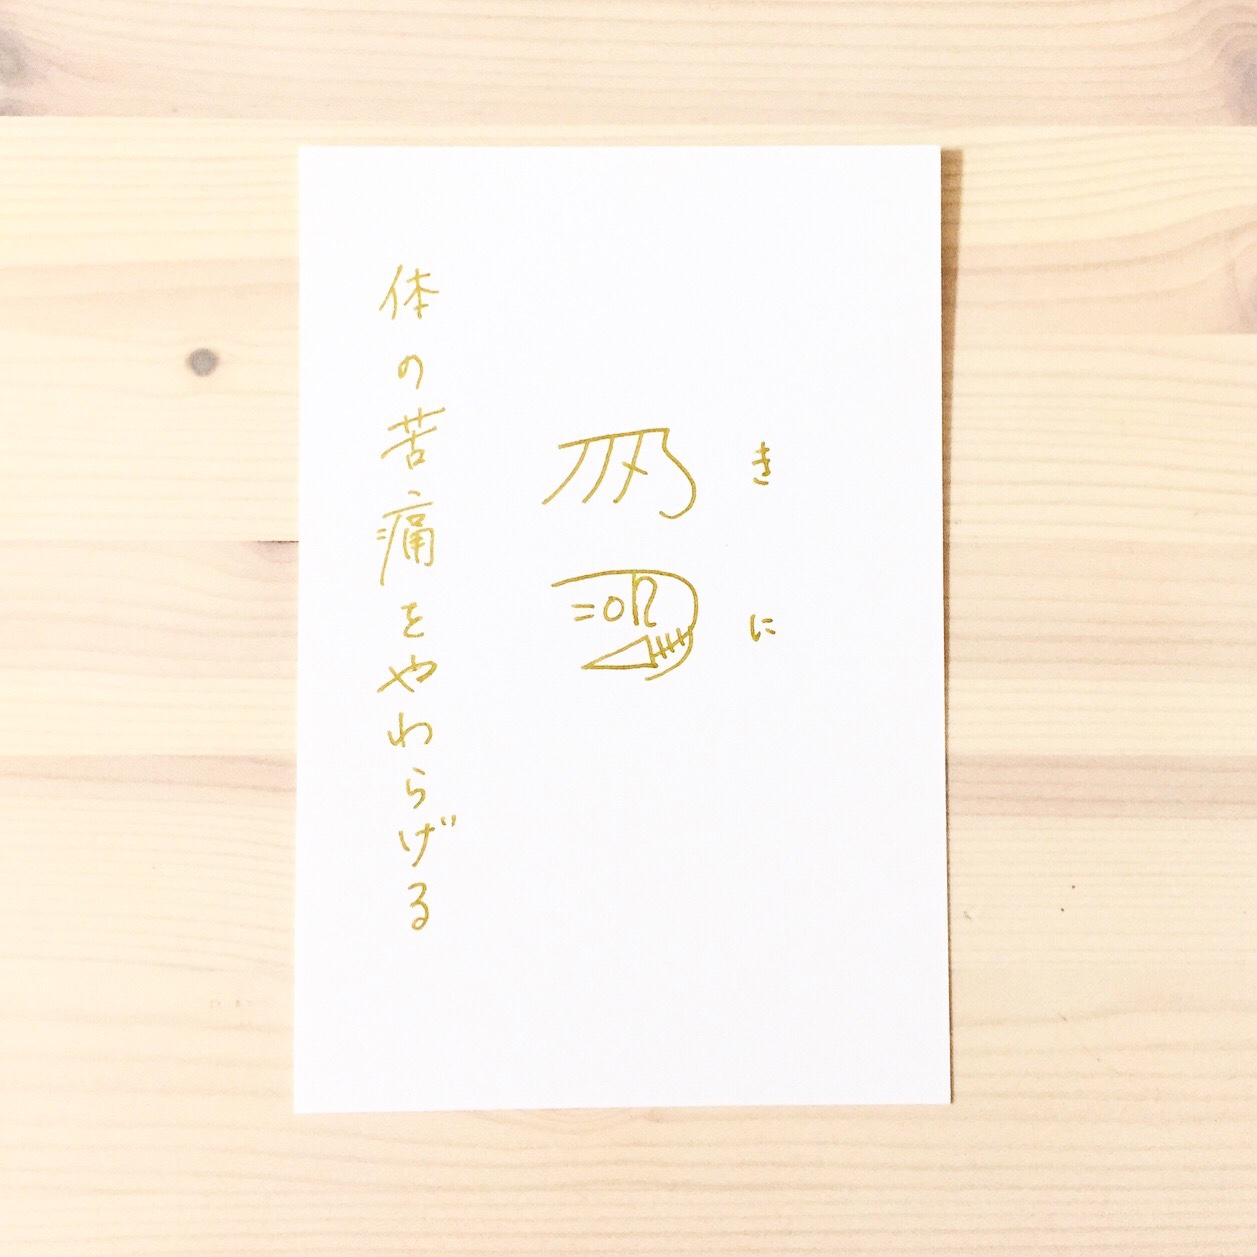 き
に
体の苦痛をやわらげる